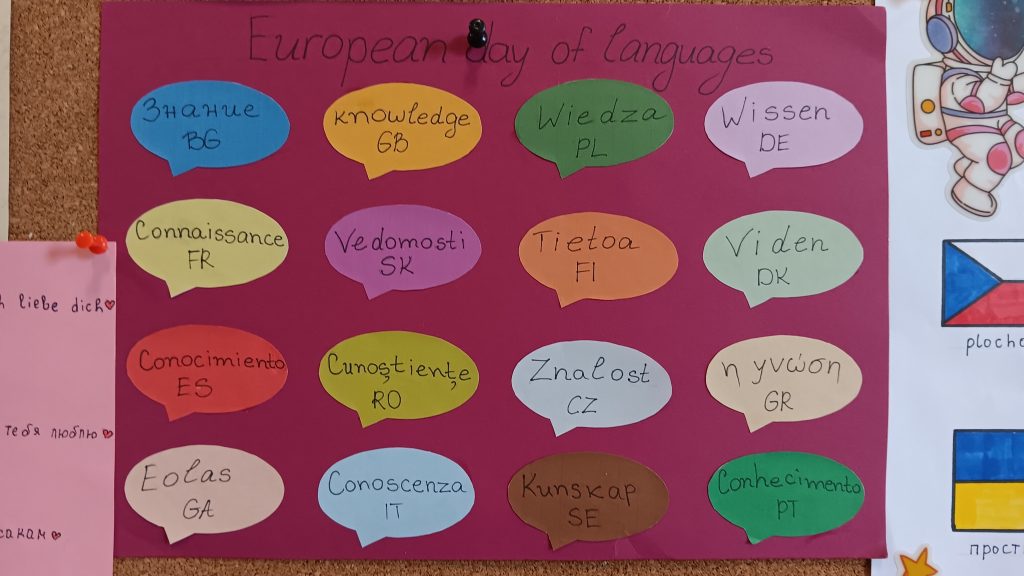 European day of languages
Знание
BG
knowledge
GB
Wiedza
PL
Wissen
DE
Connaissance
FR
Vedomosti
SK
Tietoa
FI
Viden
DK
Conocimiento
ES
Cunoştienţe
RO
Znalost
CZ
η γνώση
GR
Eolas
GA
Conoscenza
IT
Kunskap
SE
Conhecimento
PT
liebe dich
тебя люблю